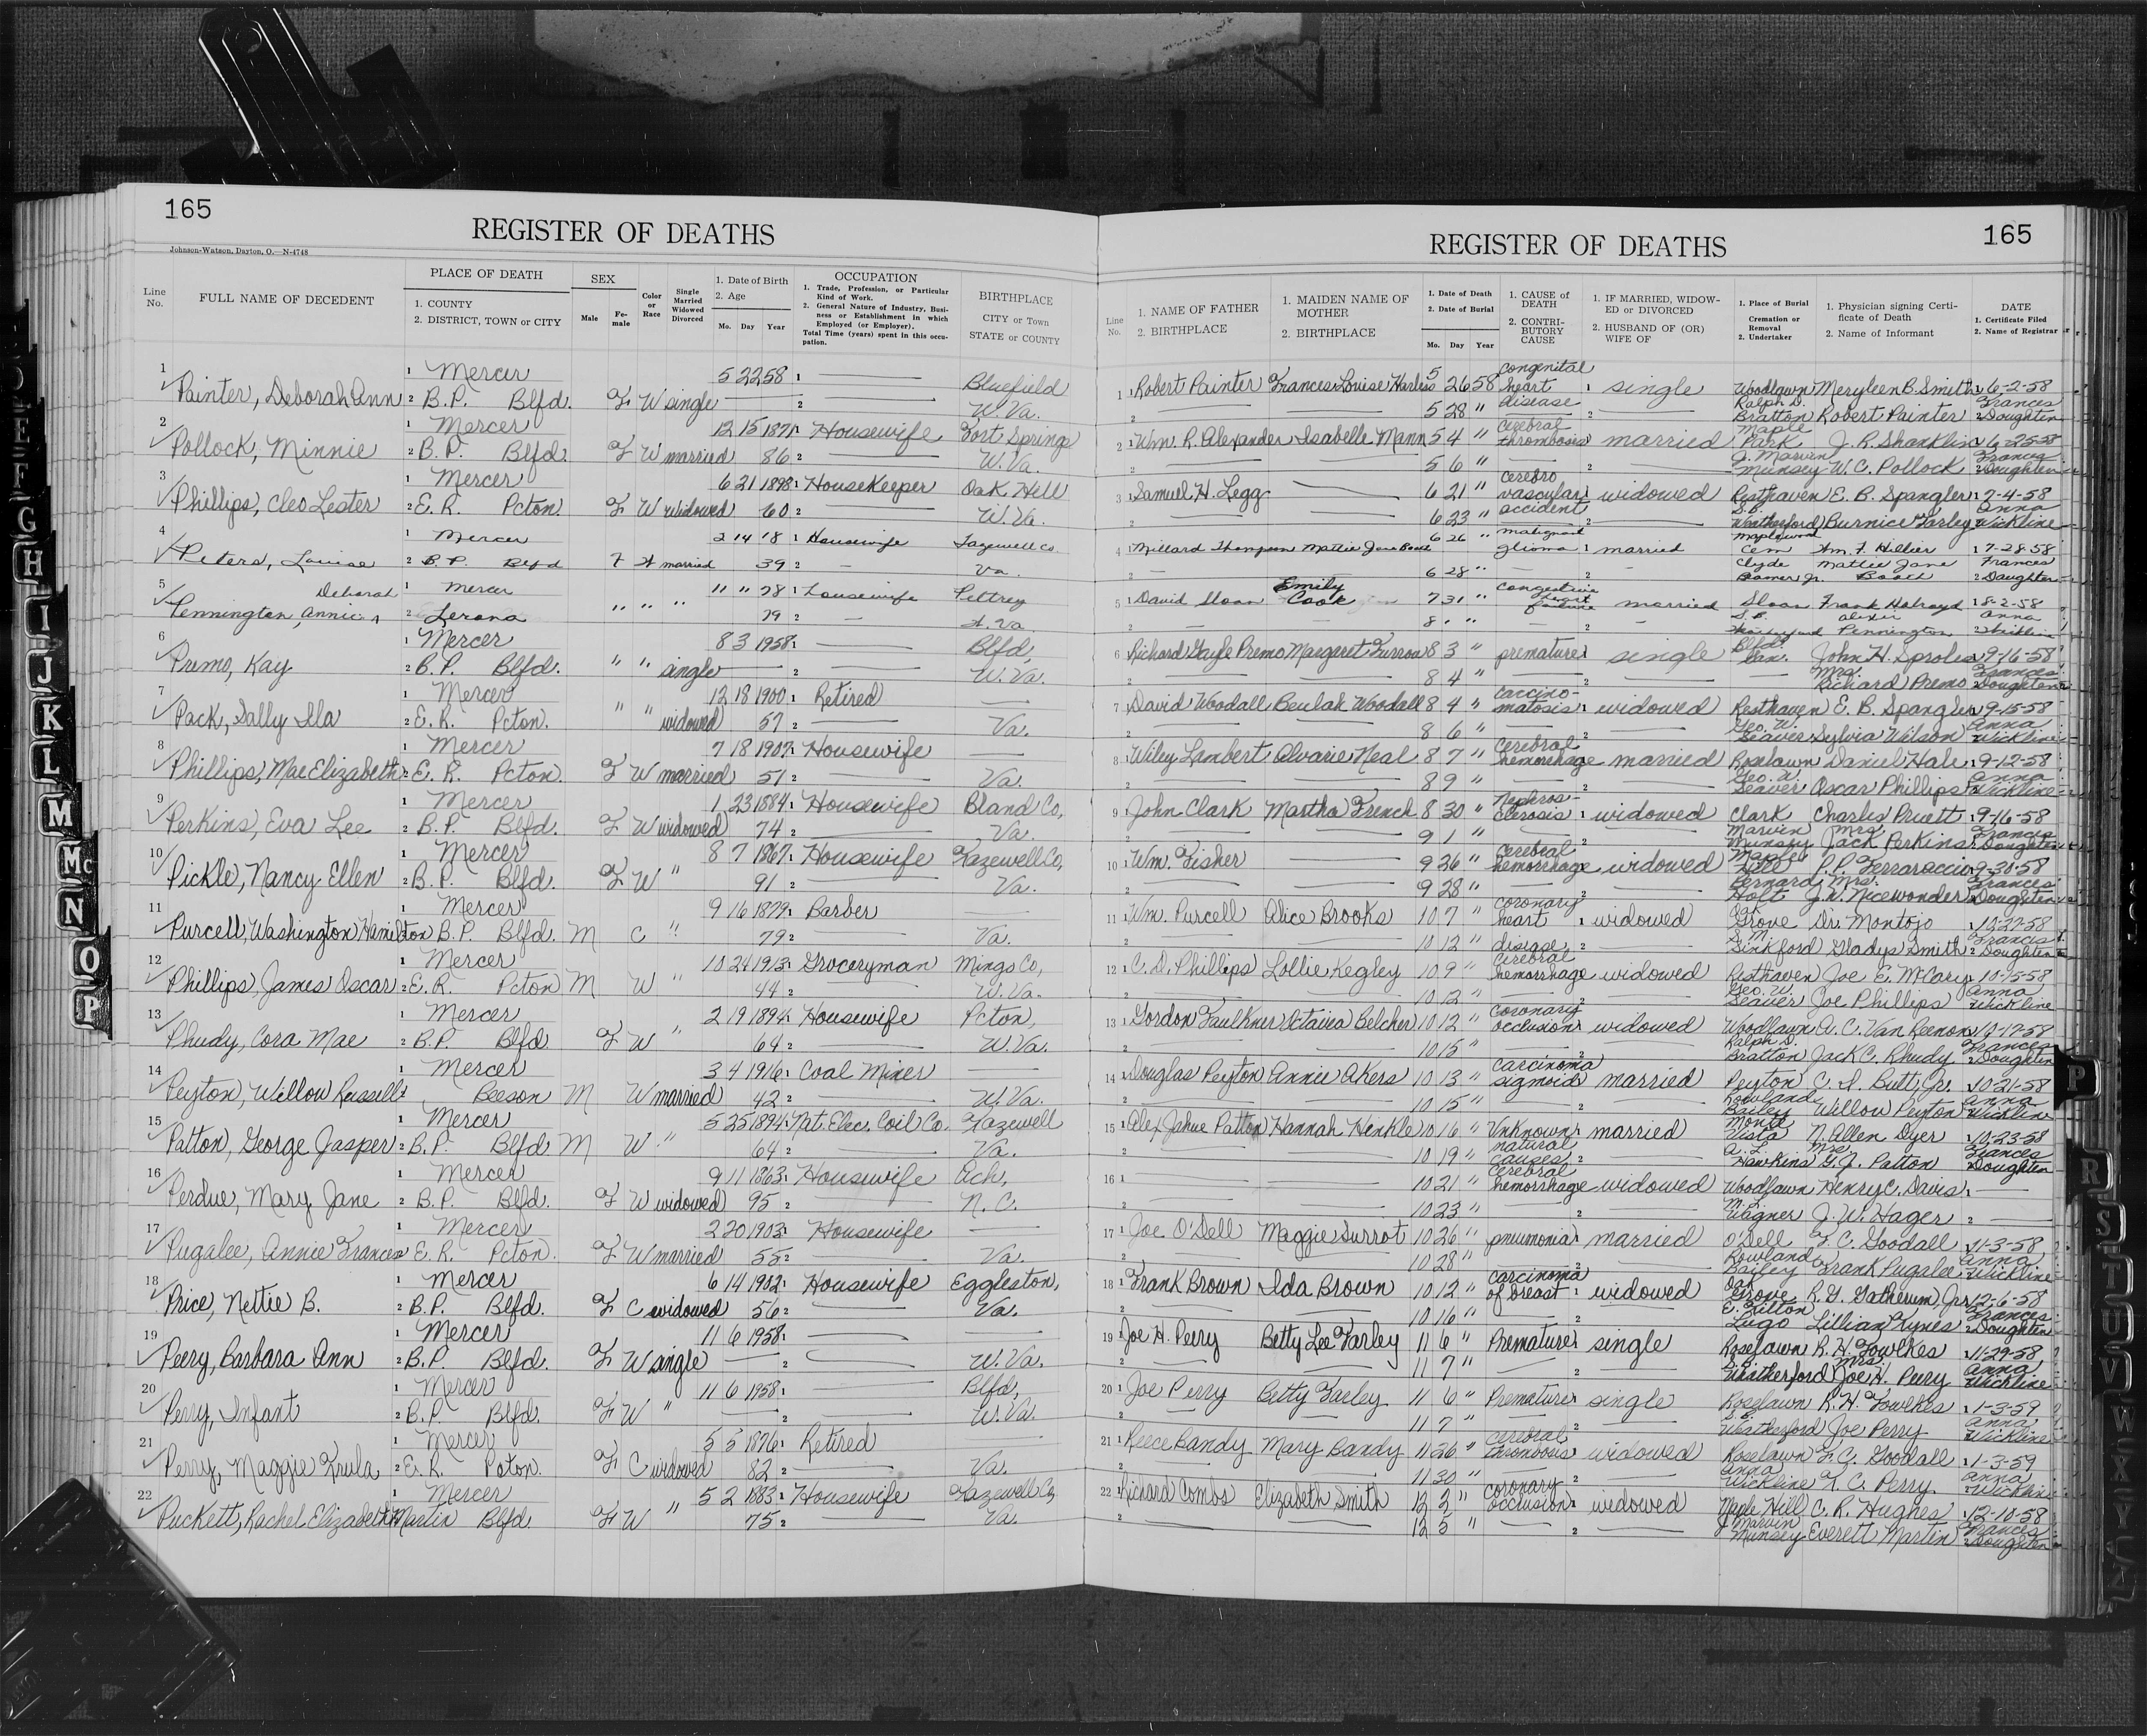 165
REGISTER OF DEATHS
Johnson-Watson, Dayton, O.—N-4748
Line No.
FULL NAME OF DECEDENT
PLACE OF DEATH
1. COUNTY
2. DISTRICT, TOWN or CITY
SEX
Male
Female
Color or Race
Single Married Widowed Divorced
1. Date of Birth
2. Age
Mo. Day Year
OCCUPATION
1. Trade, Profession, or Particular Kind of Work.
2. General Nature of Industry, Business or Establishment in which Employed (or Employer).
Total Time (years) spent in this occupation.
BIRTHPLACE
CITY or Town
STATE or COUNTY
1 1 Mercer 5 22 58 1 — Bluefield
Painter, Deborah Ann 2 B.P. Blfd. F W single — 2 — W. Va.
2 1 Mercer 12 15 1871 1 Housewife Fort Springs
Pollock, Minnie 2 B.P. Blfd. F W married 86 2 — W. Va.
3 1 Mercer 6 21 1898 1 HouseKeeper Oak Hell
Phillips, Cleo Lester 2 E.R. Pcton. F W widowed 60 2 — W. Va.
4 1 Mercer 2 14 18 1 Housewife Tazewell Co
Peters, Louise 2 B.P. Blfd F W married 39 2 — Va.
5 Deborah 1 Mercer 11 " 78 1 Housewife Pettrey
Pennington, Annie ^ 2 Lerona " " " 79 2 — W. Va
6 1 Mercer 8 3 1958 1 — Blfd,
Premo, Kay 2 B.P. Blfd. " " single — 2 — W. Va.
7 1 Mercer 12 18 1900 1 Retired —
Pack, Sally Ila 2 E.R. Pcton. " " widowed 57 2 — Va.
8 1 Mercer 7 18 1907 1 Housewife —
Phillips, Mae Elizabeth 2 E.R. Pcton. F W married 51 2 — Va.
9 1 Mercer 1 23 1884 1 Housewife Bland Co,
Perkins, Eva Lee 2 B.P. Blfd. F W widowed 74 2 — Va.
10 1 Mercer 8 7 1867 1 Housewife Tazewell Co,
Pickle, Nancy Ellen 2 B.P. Blfd. F W " 91 2 — Va.
11 1 Mercer 9 16 1879 1 Barber —
Purcell, Washington Hamilton B.P. Blfd. M C " 79 2 — Va.
12 1 Mercer 10 24 1913 1 Groceryman Mingo Co,
Phillips, James Oscar 2 E.R. Pcton M W " 44 2 — W. Va.
13 1 Mercer 2 19 1894 1 Housewife Pcton,
Phudy, Cora Mae 2 B.P. Blfd F W " 64 2 — W. Va.
14 1 Mercer 3 4 1916 1 Coal Miner —
Peyton, Willow Russell 2 Beeson M W married 42 2 — W. Va.
15 1 Mercer 5 25 1894 1 Nat. Elec. Coil Co. Tazewell
Patton, George Jasper 2 B.P. Blfd M W " 64 2 — Va.
16 1 Mercer 9 11 1863 1 Housewife Ach,
Perdue, Mary Jane 2 B.P. Blfd. F W widowed 95 2 — N. C.
17 1 Mercer 2 20 1903 1 Housewife —
Pugalee, Annie Frances E.R. Pcton. F W married 55 2 — Va.
18 1 Mercer 6 14 1902 1 Housewife Eggleston,
Price, Nettie B. 2 B.P. Blfd. F C widowed 56 2 — Va.
19 1 Mercer 11 6 1958 1 — —
Peery, Barbara Ann 2 B.P. Blfd. F W single — 2 — W. Va.
20 1 Mercer 11 6 1958 1 — Blfd,
Perry, Infant 2 B.P. Blfd. F W " — 2 — W. Va.
21 1 Mercer 5 5 1876 1 Retired
Perry, Maggie Trula 2 E.R. Pcton. F C widowed 82 2 — Va.
22 1 Mercer 5 2 1883 1 Housewife Tazewell Co,
Puckett, Rachel Elizabeth Martin Blfd. F W " 75 2 — Va.
165
REGISTER OF DEATHS
Line No.
1. NAME OF FATHER
2. BIRTHPLACE
1. MAIDEN NAME OF MOTHER
2. BIRTHPLACE
1. Date of Death
2. Date of Burial
Mo. Day Year
1. CAUSE of DEATH
2. CONTRIBUTORY CAUSE
1. IF MARRIED, WIDOWED or DIVORCED
2. HUSBAND OF (OR) WIFE OF
1. Place of Burial Cremation or Removal
2. Undertaker
1. Physician signing Certificate of Death
2. Name of Informant
DATE
1. Certificate Filed
2. Name of Registrar
1 1 Robert Painter Frances Louise Harless 5 26 58 congenital heart disease 1 single Woodlawn Meryleen B. Smith 1 6-2-58
2 — 5 28 " — 2 — Ralph D. Bratton Robert Painter 2 Frances Doughten
2 1 Wm. R. Alexander Isabelle Mann 5 4 " cerebral thrombosis married Maple Park J. R. Shanklin 1 6-25-58
2 — 5 6 " — 2 — J. Marvin Munsey W. C. Pollock 2 Frances Doughten
3 1 Samuel H. Legg — 6 21 " cerebro vascular accident 1 widowed Resthaven E. B. Spangler 1 7-4-58
2 — 6 23 " 2 — S.B. Weatherford Burnice Farley Anna Wickline
4 1 Millard Thompson Mattie Jane Booth 6 26 " malignant glioma 1 married Maplewood Cem Wm. F. Hillier 1 7-28-58
2 — 6 28 " — 2 — Clyde Bomer Jr. Mattie Jane Booth 2 Frances Doughten
5 1 David Sloan Emily Cook 7 31 " Congestive heart failure married Sloan Frank Holroyd 1 8-2-58
2 — 8 " — 2 — S.B. Weatherford Alexis Pennington Anna Wickline
6 1 Richard Gayle Premo Margaret Furrow 8 3 " premature 1 single Blfd. San. John H. Sproles 1 9-16-58
2 — 8 4 " — 2 — — Mrs. Richard Premo Frances Doughten
7 1 David Woodall Beulah Woodall 8 4 " carcinomatosis 1 widowed Resthaven E. B. Spangler 9-15-58
2 — 8 6 " — 2 — Geo. W. Seaver Sylvia Wilson Anna Wickline
8 1 Wiley Lambert Alvarie Neal 8 7 " cerebral hemorrhage married Roselawn Daniel Hale 1 9-12-58
2 — 8 9 " — 2 — Geo. W. Seaver Oscar Phillips Anna Wickline
9 1 John Clark Martha French 8 30 " Nephrosclerosis 1 widowed Clark Charles Pruett 1 9-16-58
2 — 9 1 " — 2 — Marvin Munsey Mrs. Jack Perkins Frances Doughten
10 1 Wm. Fisher — 9 26 " cerebral hemorrhage widowed Maple Hill P. P. Ferraraccio 9-30-58
2 — 9 28 " — 2 — Bernard Holt Mrs. J. W. Nicewonder Frances Doughten
11 1 Wm. Purcell Alice Brooks 10 7 " coronary heart disease 1 widowed Oak Grove Dr. Montojo 1 10-27-58
2 — 10 12 " 2 — S.M. Sinkford Gladys Smith 2 Frances Doughten
12 1 C. D. Phillips Lollie Kegley 10 9 " cerebral hemorrhage widowed Resthaven Joe E. McCary 10-15-58
2 — 10 12 " — 2 — Geo. W. Seaver Joe Phillips Anna Wickline
13 1 Gordon Faulkner Octavia Belcher 10 12 " coronary occlusion 1 widowed Woodlawn A. C. Van Reenen 10-17-58
2 — 10 15 " — 2 — Ralph D. Bratton Jack C. Rhudy Frances Doughten
14 1 Douglas Peyton Annie Akers 10 13 " carcinoma sigmoid 1 married Peyton C. D. Butt, Jr. 10-21-58
2 — 10 15 " — 2 — Rowland Bailey Willow Peyton Anna Wickline
15 1 Alex Jahue Patton Hannah Henkle 10 16 " Unknown natural causes 1 married Monte Vista N. Allen Dyer 1 10-23-58
2 — 10 19 " 2 — A. L. Hawkins Mrs. G. J. Patton Frances Doughten
16 1 — 10 21 " cerebral hemorrhage widowed Woodlawn Henry C. Davis 1 —
2 — 10 23 " — 2 — Wagner J. W. Hager 2 —
17 1 Joe O'Dell Maggie Surrot 10 26 " pneumonia 1 married O'Dell F. C. Goodall 1 11-3-58
2 — 10 28 " — 2 — Rowland Bailey Frank Pugalee Anna Wickline
18 1 Frank Brown Ida Brown 10 12 " carcinoma of breast 1 widowed Oak Grove R. G. Gatherum, Jr. 12-6-58
2 — 10 16 " — 2 — E. Zilton Lugo Lillian Kynes 2 Frances Doughten
19 1 Joe H. Perry Betty Lee Farley 11 6 " Premature 1 single Roselawn R. H. Fowlkes 1 11-29-58
2 — 11 7 " — 2 — S.B. Weatherford Mrs. Joe H. Peery Anna Wickline
20 1 Joe Perry Betty Farley 11 6 " Premature 1 single Roselawn R. H. Fowlkes 1 1-3-59
2 — 11 7 " — 2 — S.B. Weatherford Joe Perry Anna Wickline
21 1 Reece Bandy Mary Bandy 11 26 " cerebral thrombosis widowed Roselawn F. C. Goodall 1 1-3-59
2 — 11 30 " — 2 — Anna Wickline T. C. Perry Anna Wickline
22 1 Richard Combs Elizabeth Smith 12 2 " coronary occlusion 1 widowed Maple Hill C. R. Hughes 1 12-10-58
2 — 12 5 " — 2 — J. Marvin Munsey Everett Martin Frances Doughten
E
F
G
H
I
J
K
L
M
Mc
N
O
P
P
R
S
T
U
V
W
X
Y